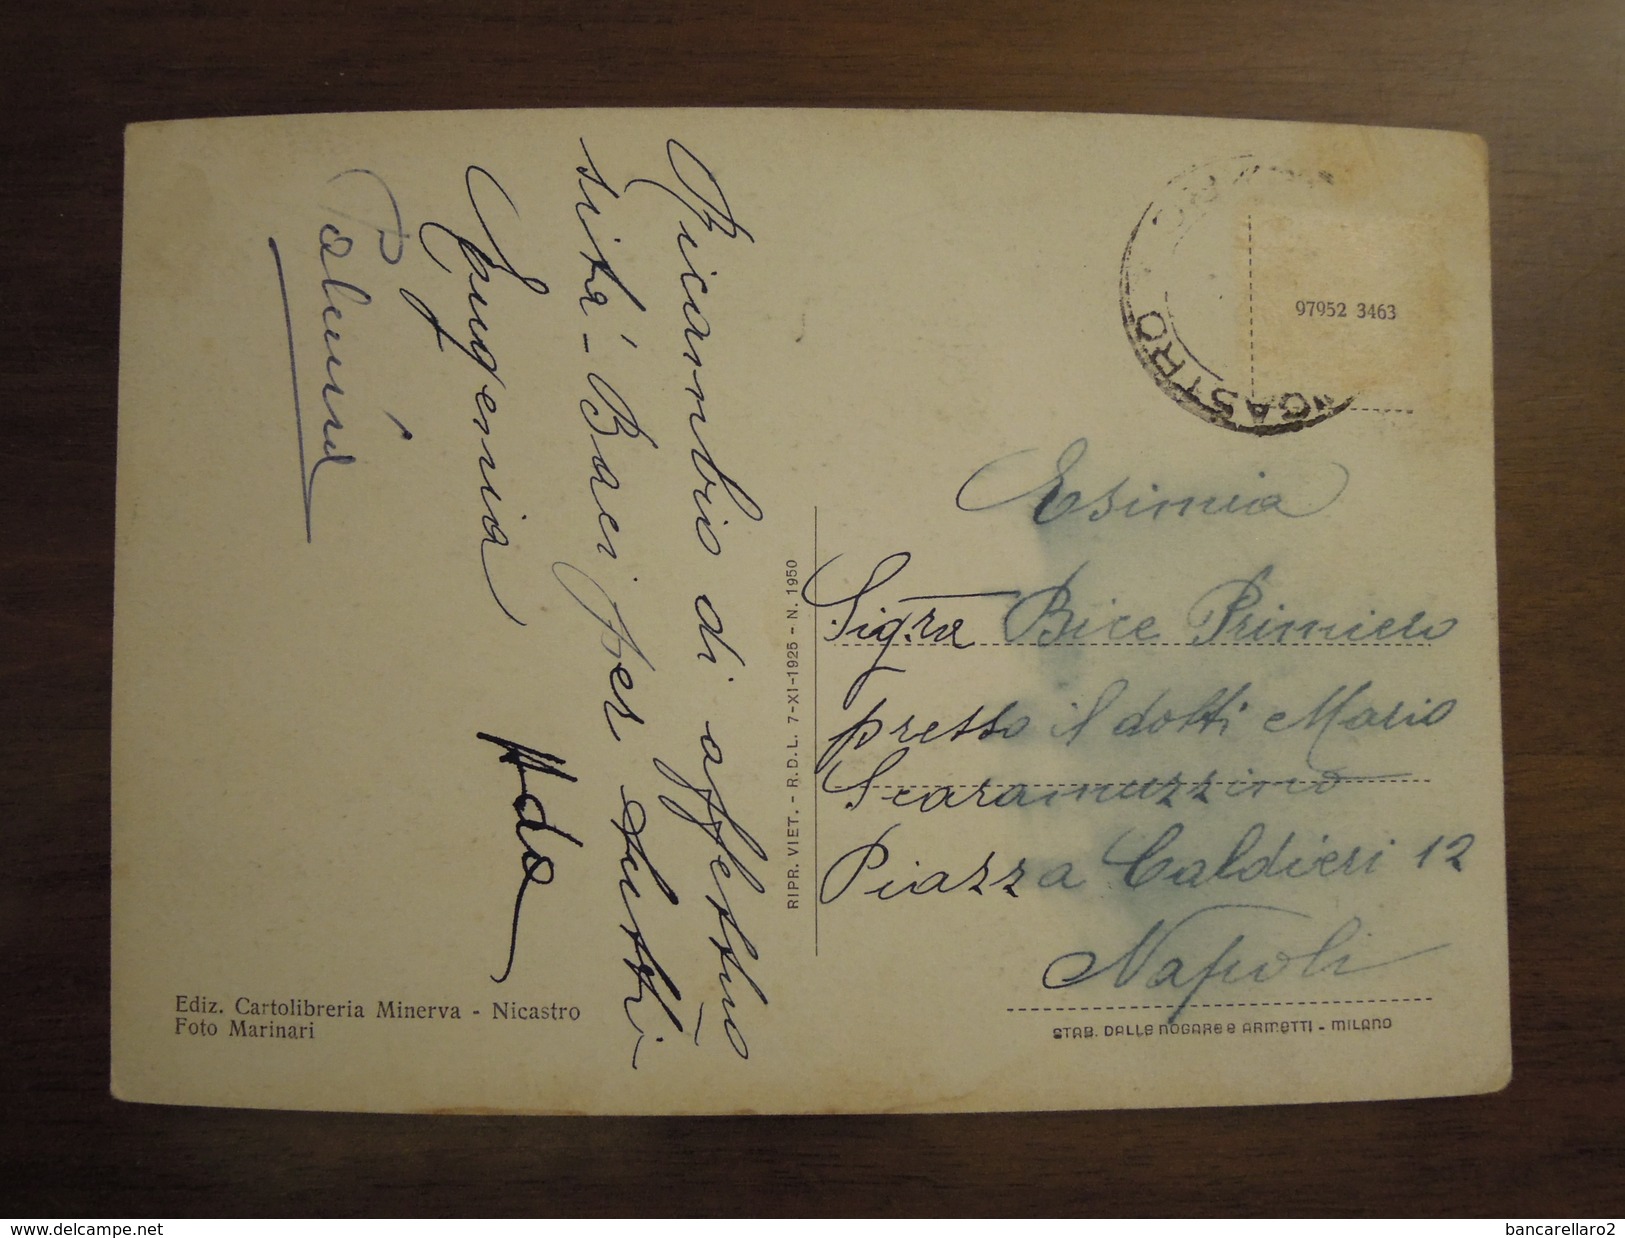 Ricambio di affettuo
sità - Baci per tutti -
Eugenia Ada
RIPR. VIET. - R.D.L. 7-XI-1925 - N. 1950
NICASTRO
97952 3463
Esimia
Sig.ra Bice Primiero
presso il dott. Mario
Scaramuzzino
Piazza Caldieri 12
Napoli
STAB. DALLE NOGARE e ARMETTI - MILANO
Ediz. Cartolibreria Minerva - Nicastro
Foto Marinari
www.delcampe.net
bancarellaro2